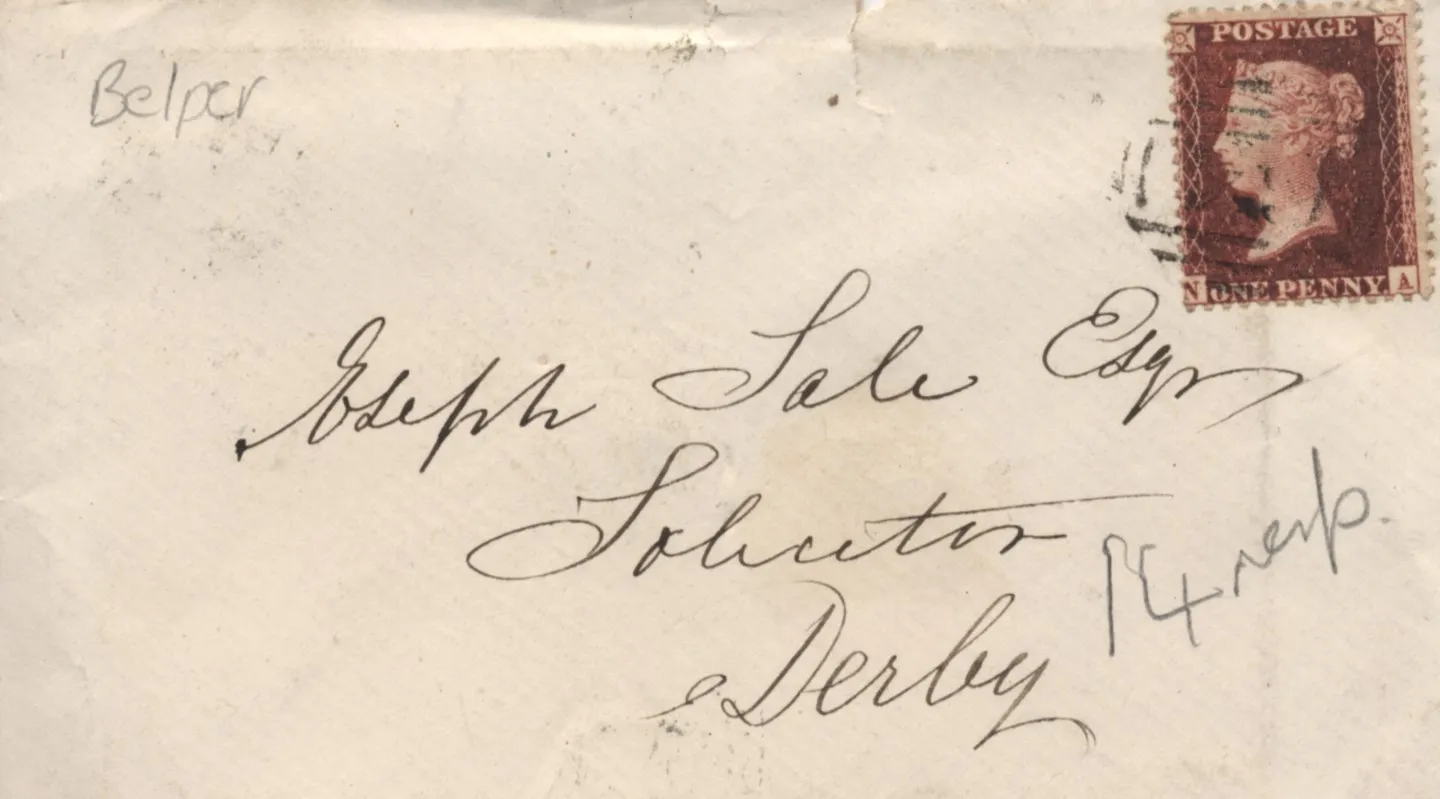 POSTAGE
Belper
N ONE PENNY A
Joseph Sale Esqr
Solicitor
Derby